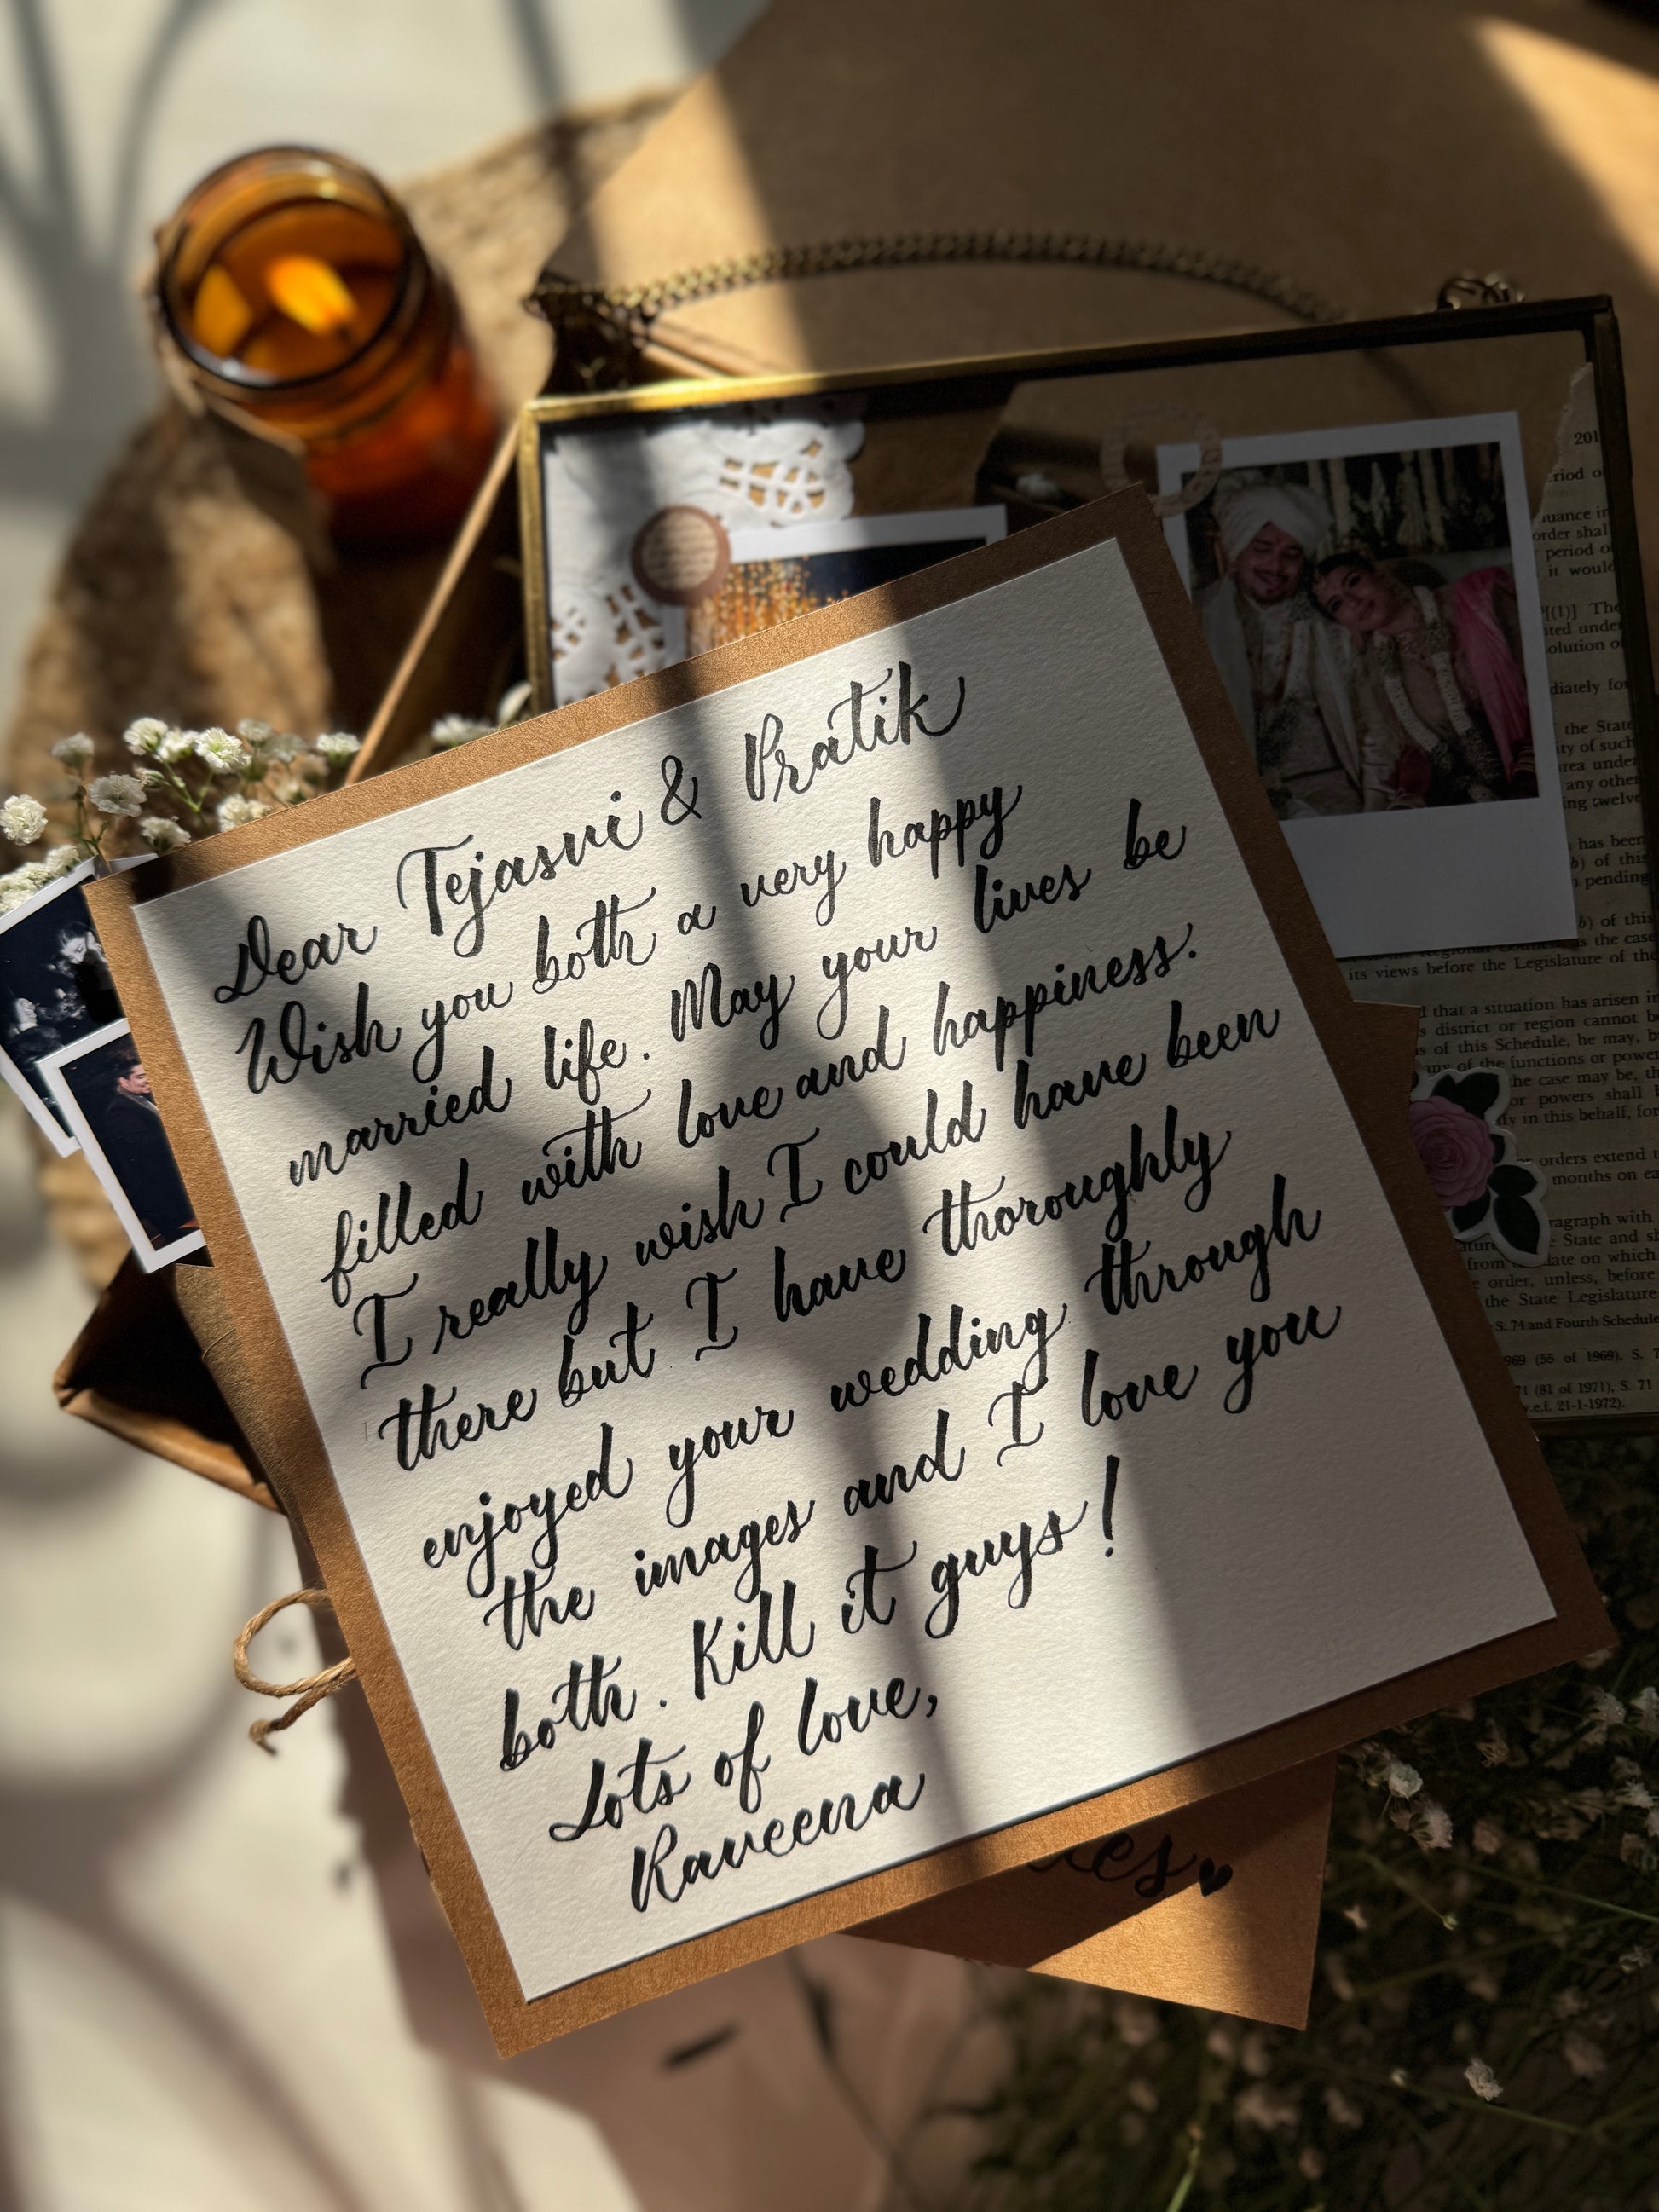 Dear Tejasvi & Pratik
Wish you both a very happy
married life. May your lives be
filled with love and happiness.
I really wish I could have been
there but I have thoroughly
enjoyed your wedding through
the images and I love you
both. Kill it guys!
Lots of love,
Raveena
201
period o
order shal
period o
it would
[(1)] The
diately for
the State
ity of such
area under
any other
ing twelve
has been
b) of this
pending
b) of this
as the case
its views before the Legislature of the
that a situation has arisen in
district or region cannot be
of this Schedule, he may, b
any of the functions or power
he case may be, th
or powers shall
in this behalf, for
orders extend
months on ea
paragraph with
State and s
ate on which
order, unless, before
the State Legislature
S. 74 and Fourth Schedule
1969 (55 of 1969), S. 7
71 (81 of 1971), S. 71
w.e.f. 21-1-1972).